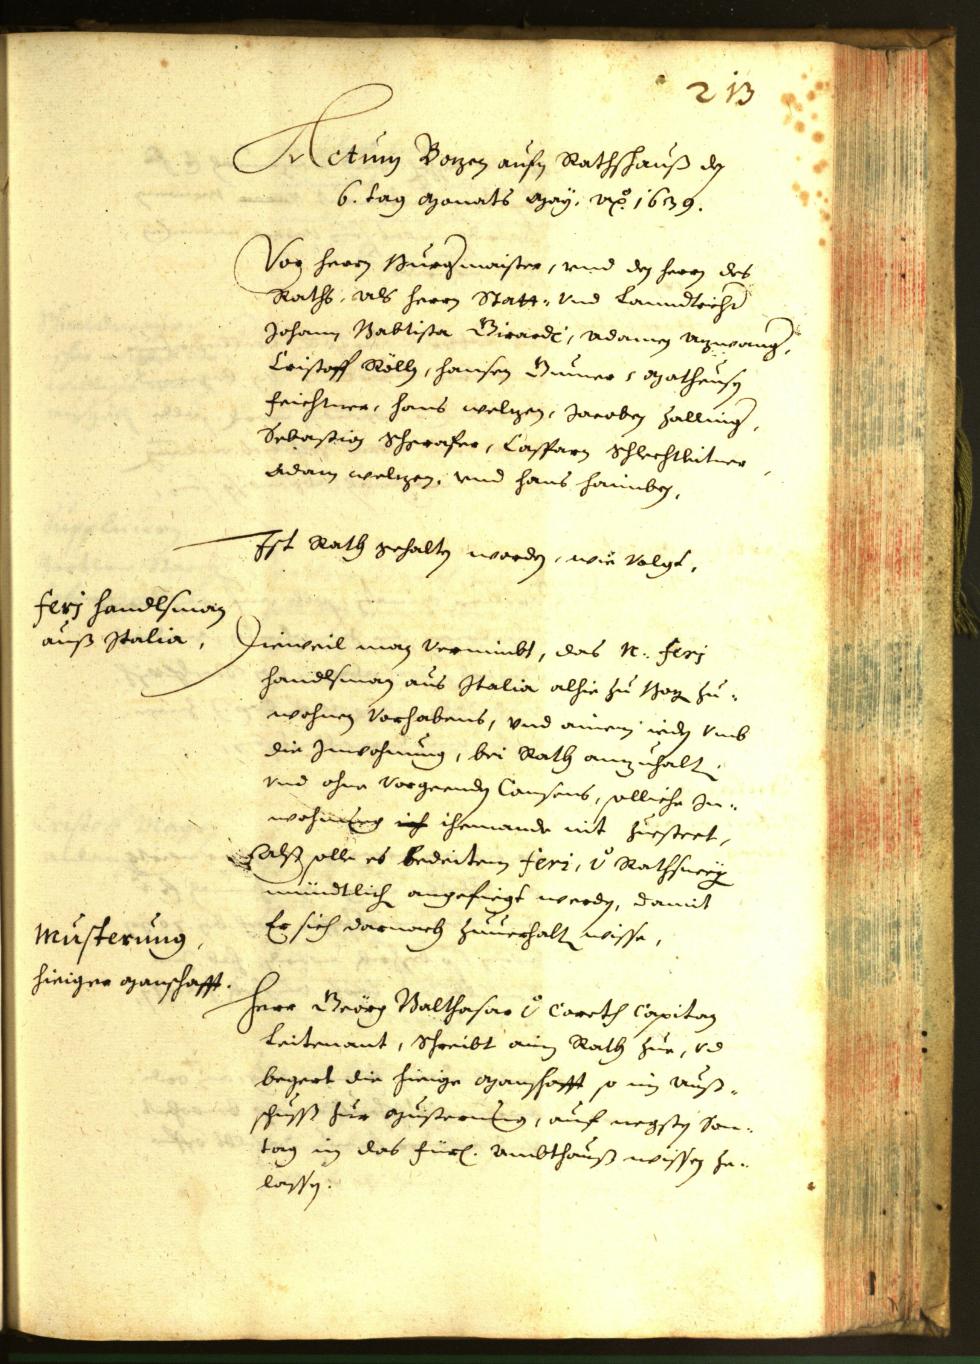 213
Actum Bozen aufm Rathshauß den
6. tag Monats May, Aõ. 1639.
Vor herrn Burgermaister, vnd den herrn des
Raths, als herrn Statt- vnd Lanndtrichter
Johann Babtista Girardi, Adamen
Cristoff Röllin, Hansen Gumer, Matheusn
Feichtner, Hans Welzen, Jacoben Zallinger,
Sebastian Schgrafer, Casparn Schlechtleitner
Adam Welzen, vnd Hans Haimben,
Ist Rath gehalten worden, wie volgt,
Ferj Handlsman
auß Italia,
Dieweil man vernimbt, das N: Ferj
Handlsman aus Italia alhie zu Bozen zu-
wohnen vorhabens, vnd ainem ieden vmb
die Inwohnung, bei Rath anzuhalten
vnd ohne vorgeenden Consens, solliche In-
wohnung iemande nit zuesteet,
Alß solle es bedeitem Ferj, von Raths
mündtlich angefiegt werden, damit
Er sich darnach zuuerhalten wisse,
Musterung,
hieiger Manschafft.
Herr Geörg Balthasar von Coreth Capitan
Leitenant, schreibt aim Rath zue, vnd
begert die hieige Manschafft so im Auß-
schuss zur Musterung, auf negsten Son-
tag in das fürl. Ambthauß wissen ze-
lassen.